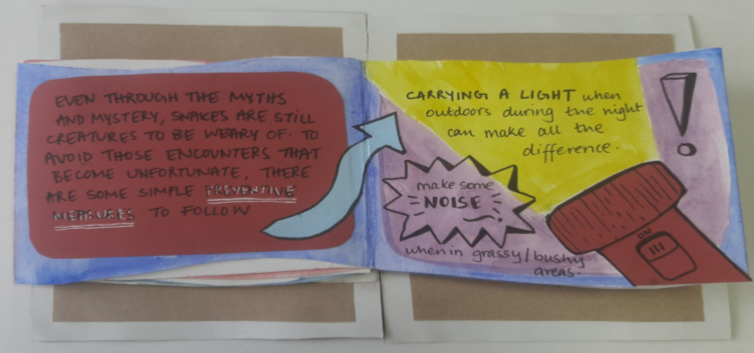 EVEN THROUGH THE MYTHS
AND MYSTERY, SNAKES ARE STILL
CREATURES TO BE WEARY OF. TO
AVOID THOSE ENCOUNTERS THAT
BECOME UNFORTUNATE, THERE
ARE SOME SIMPLE PREVENTIVE
MEASURES TO FOLLOW
CARRYING A LIGHT when
outdoors during the night
can make all the
difference.
!
make some
NOISE
when in grassy/bushy
areas.
ON